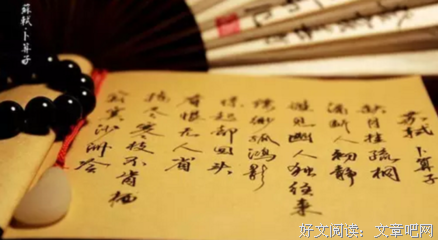 蘇軾·卜算子
苏轼 卜算子
缺月挂疏桐
漏断人初静
谁见幽人独往来
缥缈孤鸿影
惊起却回头
有恨无人省
拣尽寒枝不肯栖
寂寞沙洲冷
好文阅读：文章吧网